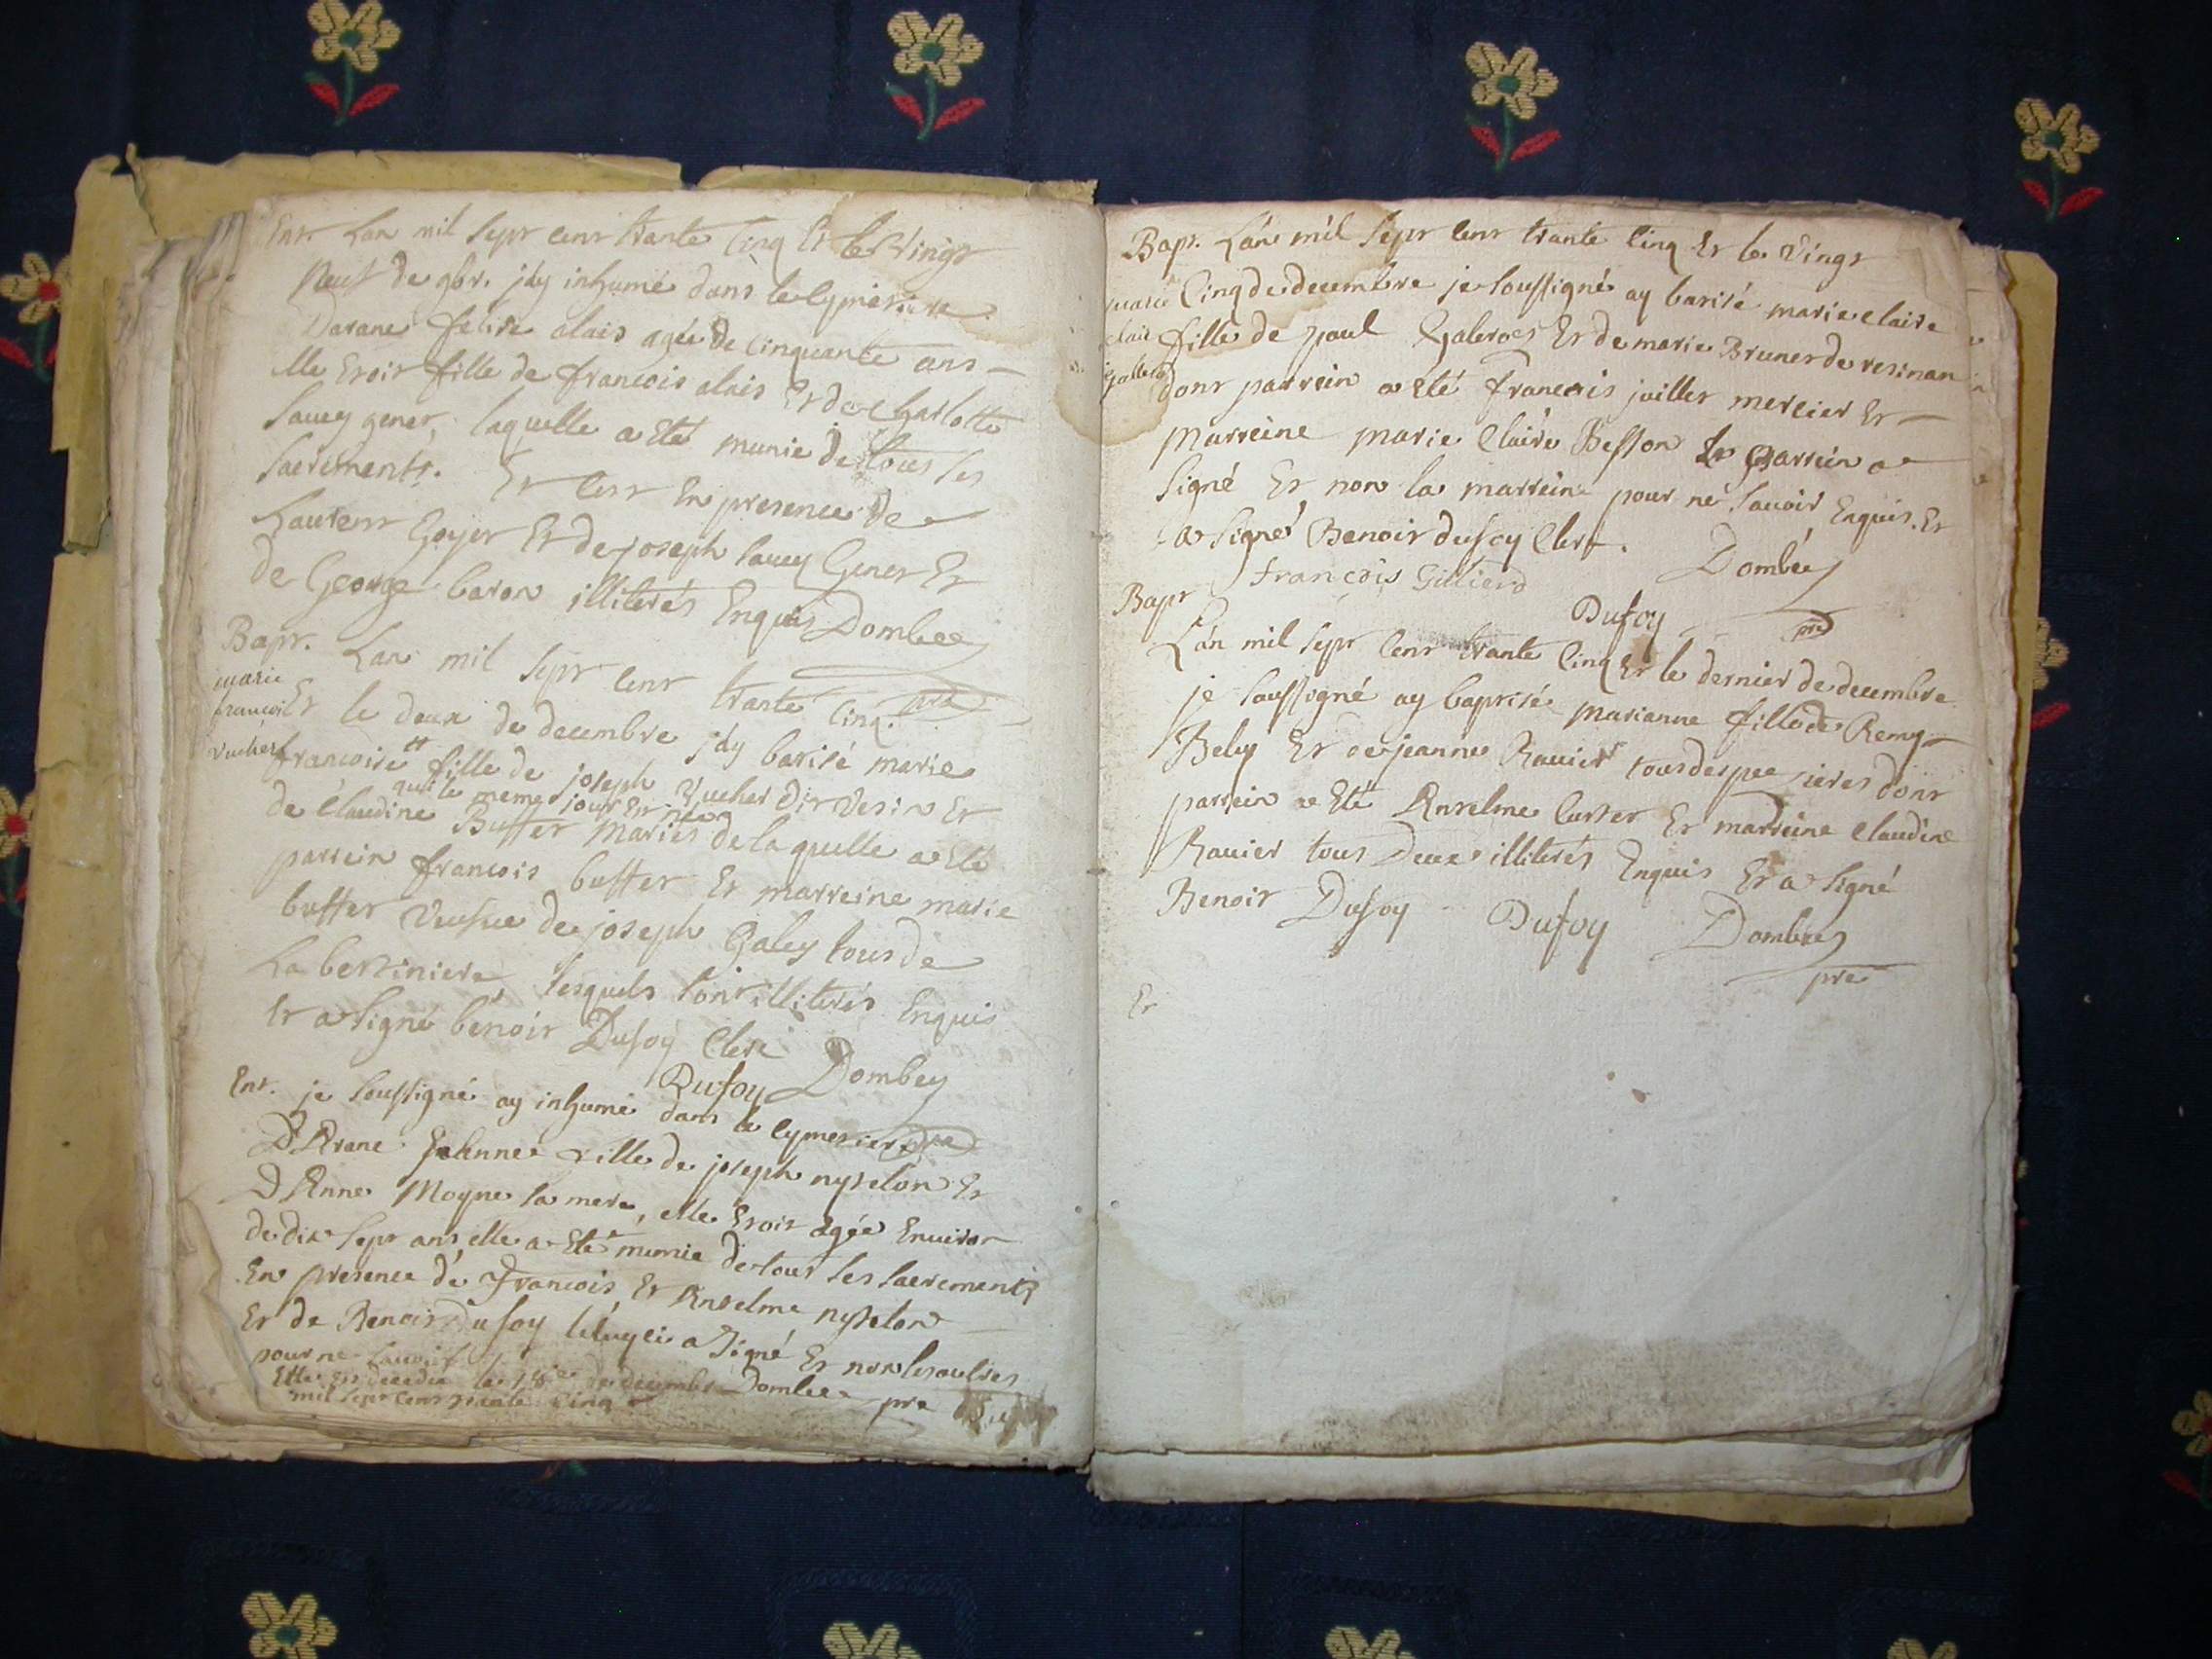 Ent. Lan mil sept cent trante cinq Et le Vingt
neuf de 9br. jay inhumé dans le Cymetiere
Darane felise alais agée de cinquante ans
lle Etoit fille de francois alais Et de Charlotte
Sauey genet, laquelle a Eté munie de tous les
sacrements. Et cest En presence de
Laurent Goyet Et de joseph Sauey Genet Et
de George baron illiterés Enquis Dombey
pre
Bapt. Lan mil sept cent trante cinq.
marie
francoise
Vuchet
Et le deux de decembre jay batisé marie
francoise fille de joseph Vuchet dit Vesin Et
née le meme jour
de Claudine Buffet mariés de laquelle a Eté
parrein francois buffet Et marreine marie
buffet Veufue de joseph Galey tous de
La bertiniere, lesquels sont illiterés Enquis
Et a signé benoit Dufoy Clerc
Dufoy Dombey
pre
Ent. je soussigné ay inhumé dans le Cymetiere
D'Arane jeanne fille de joseph nyselon Et
D'Anne Moyne sa mere, elle Etoit agée Enuiron
de dix sept ans elle a Eté munie de tous les sacrements
En presence de francois Et Anselme nyselon
Et de Benoit Dufoy celuyci a signé Et non les aultres
pour ne sauoir
Elle est decedée le 18e de decembre Dombey pre
mil sept cens trante cinq
Bapt. Lan mil sept cent trante cinq Et le Vingt
marie
claire
cinq de decembre je soussigné ay batisé marie claire
fille de paul Galeroes Et de marie Brunet de resinan
dont parrein a Eté francois juillet mercier Et
marreine marie Claire Besson le parrein a
signé Et non la marreine pour ne sauoir Enquis. Et
a signé Benoit dufoy Clerc. Dombey
françois Gillierd
Dufoy
pre
Bapt
Lan mil sept cent trante cinq Et le dernier de decembre
je soussigné ay baptisé marianne fille de Remy
Beley Et de jeanne Rauier tous des peesieres dont
parrein a Eté Anselme Curtet Et marreine Claudine
Rauier tous Deux illiterés Enquis Et a signé
Benoit Dufoy Dufoy Dombey
pre
Et